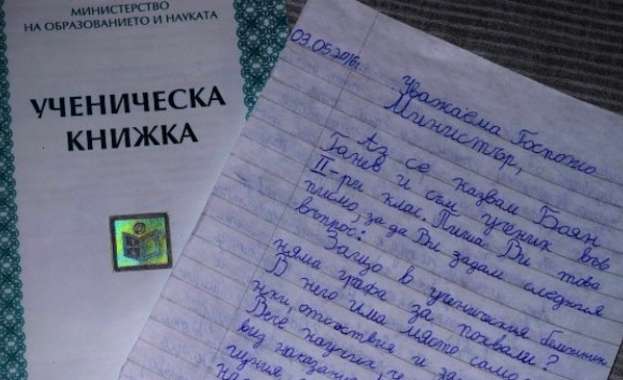 МИНИСТЕРСТВО
НА ОБРАЗОВАНИЕТО И НАУКАТА
УЧЕНИЧЕСКА
КНИЖКА
03.05.2016г.
Уважаема Госпожо
Министър,
Аз се казвам Боян
Ганев и съм ученик във
II-ри клас. Пиша Ви това
писмо, за да Ви задам следния
въпрос:
Защо в ученическия бележник
няма графа за похвали?
В него има място само
отсъствия и за
Вече научих, че
вид наказание